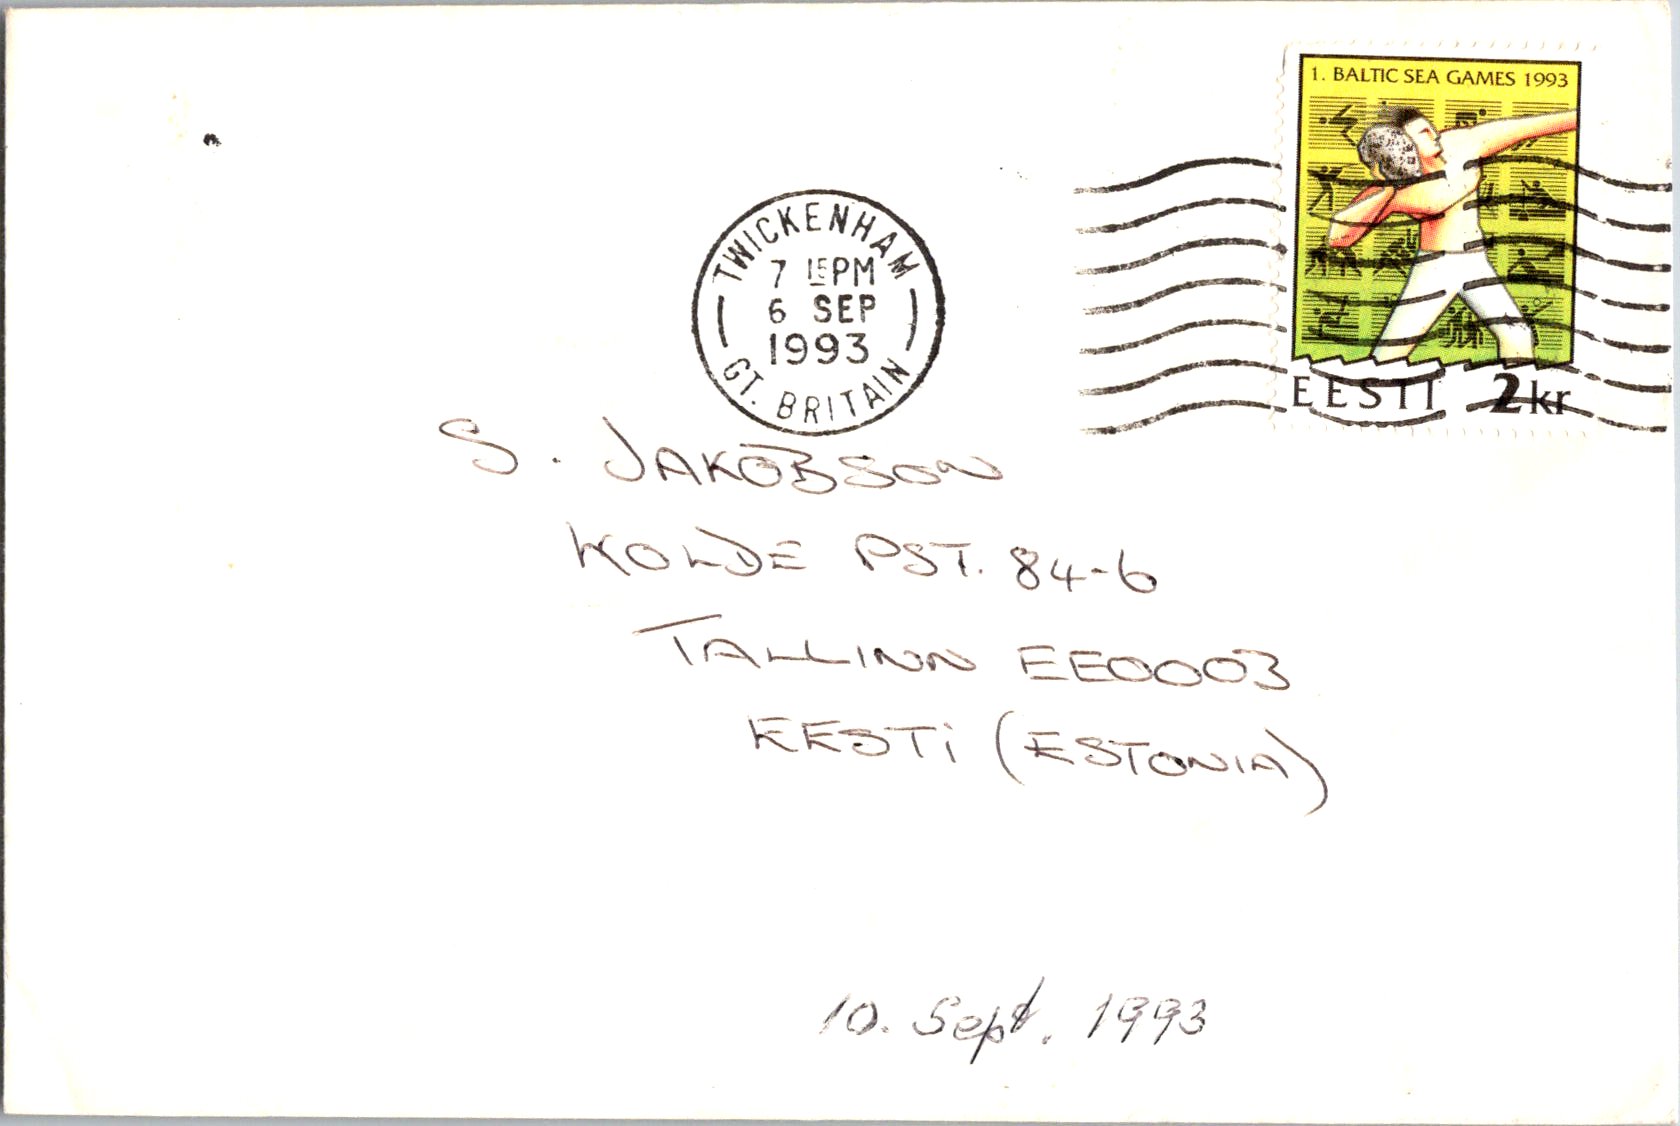 1. BALTIC SEA GAMES 1993
EESTI 2kr
TWICKENHAM
7 15PM
6 SEP
1993
GT. BRITAIN
S. JAKOBSON
KOLDE PST. 84-6
TALLINN EE0003
EESTi (ESTONIA)
10. Sept. 1993